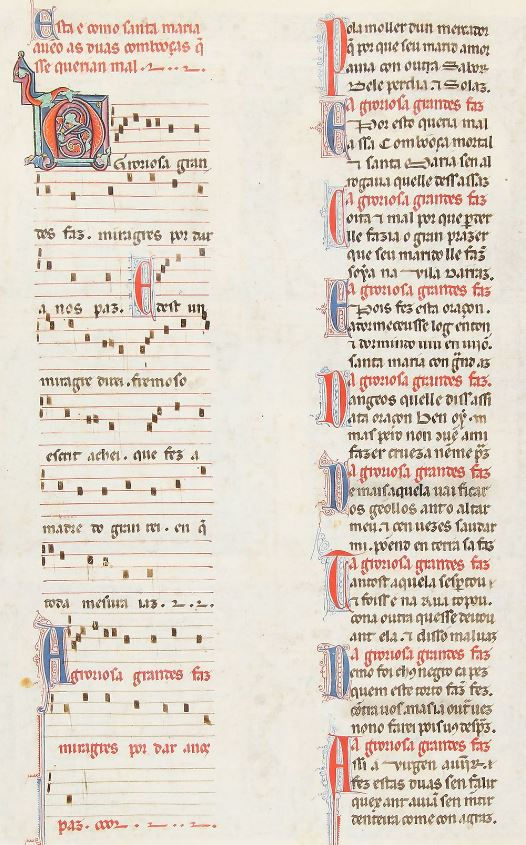 Esta e como santa maria
aueo as duas combooças q̃
sse querian mal.
A Groriosa gran
des faz. miragres por dar
a nos paz. E dest un
miragre direi. fremoso
escrit achei. que fez a
madre do gran rei. en q̃
toda mesura iaz.
A groriosa grandes faz
miragres por dar anos
paz.
Pola moller dun mercador
q̃ por que seu marid amor
auia con outra Sabor
Dele perdia. ⁊ Solaz.
A groriosa grandes faz
E Por esto queria mal
a ssa Combooça mortal
⁊ santa Maria sen al
rogaua quelle dess assaz
A groriosa grandes faz
Coita ⁊ mal por que perder
lle fazia o gran prazer
que seu marido lle faz
soya na vila Darraz.
A groriosa grandes faz
E Pois fez esta oraçon.
adormeceusse log enton
⁊ dormindo uiu en uijõ.
santa maria con grãd az
A groriosa grandes faz.
Dangeos quelle diss assi
ata oraçon ben oý. m
mas pero non auẽ ami
fazer crueza nẽme pz̃
A groriosa grandes faz
Demais aquela uai ficar
os geollos ant o altar
meu. ⁊ cen uezes saudar
mi. poend en terra sa faz
A groriosa grandes faz
Tantost aquela sespertou
⁊ foisse na rua topou.
cona outra quesse deitou
ant ela. ⁊ disso maluaz
A groriosa grandes faz
Demo foi chus negro ca pez
quem este torto faz fez.
cõtra uos. mas ia outr uez
nono farei pois uos despz̃.
A groriosa grandes faz
Assi a virgen
fez estas duas sen falir
que xant auiã sen mẽtir
denteira come con agraz.